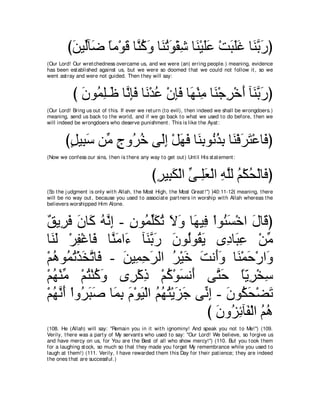 (رَبَّنَا غَلَبَتْ عَلَيْنَا شِقْوَتُنَا وَكُنَّا قَوْماً ضَآلِّينَ)
(Our Lord! Our wretchedness overcame us, and we were (an) erring people.) meaning, evidence has been established against us, but we were so doomed that we could not follow it, so we went astray and were not guided. Then they will say:
(رَبَّنَآ أَخْرِجْنَا مِنْهَا فَإِنْ عُدْنَا فَإِنَّا ظَـلِمُونَ )
(Our Lord! Bring us out of this. If ever we return (to evil), then indeed we shall be wrongdoers.) meaning, send us back to the world, and if we go back to what we used to do before, then we will indeed be wrongdoers who deserve punishment. This is like the Ayat:
(فَاعْتَرَفْنَا بِذُنُوبِنَا فَهَلْ إِلَى خُرُوجٍ مِّن سَبِيلٍ)
(Now we confess our sins, then is there any way to get out) Until His statement:
(فَالْحُكْمُ للَّهِ الْعَلِـىِّ الْكَبِيرِ)
(So the judgment is only with Allah, the Most High, the Most Great!") (40:11-12) meaning, there will be no way out, because you used to associate partners in worship with Allah whereas the believers worshipped Him Alone.
(قَالَ اخْسَئُواْ فِيهَا وَلاَ تُكَلِّمُونِ - إِنَّهُ كَانَ فَرِيقٌ مِّنْ عِبَادِى يَقُولُونَ رَبَّنَآ ءَامَنَّا فَاغْفِرْ لَنَا وَارْحَمْنَا وَأَنتَ خَيْرُ الرَحِمِينَ - فَاتَّخَذْتُمُوهُمْ سِخْرِيّاً حَتَّى أَنسَوْكُمْ ذِكْرِى وَكُنْتُمْ مِّنْهُمْ تَضْحَكُونَ - إِنِّى جَزَيْتُهُمُ الْيَوْمَ بِمَا صَبَرُواْ أَنَّهُمْ هُمُ الْفَآئِزُونَ )
(108. He (Allah) will say: "Remain you in it with ignominy! And speak you not to Me!") (109. Verily, there was a party of My servants who used to say: "Our Lord! We believe, so forgive us and have mercy on us, for You are the Best of all who show mercy!") (110. But you took them for a laughing stock, so much so that they made you forget My remembrance while you used to laugh at them!) (111. Verily, I have rewarded them this Day for their patience; they are indeed the ones that are successful.)